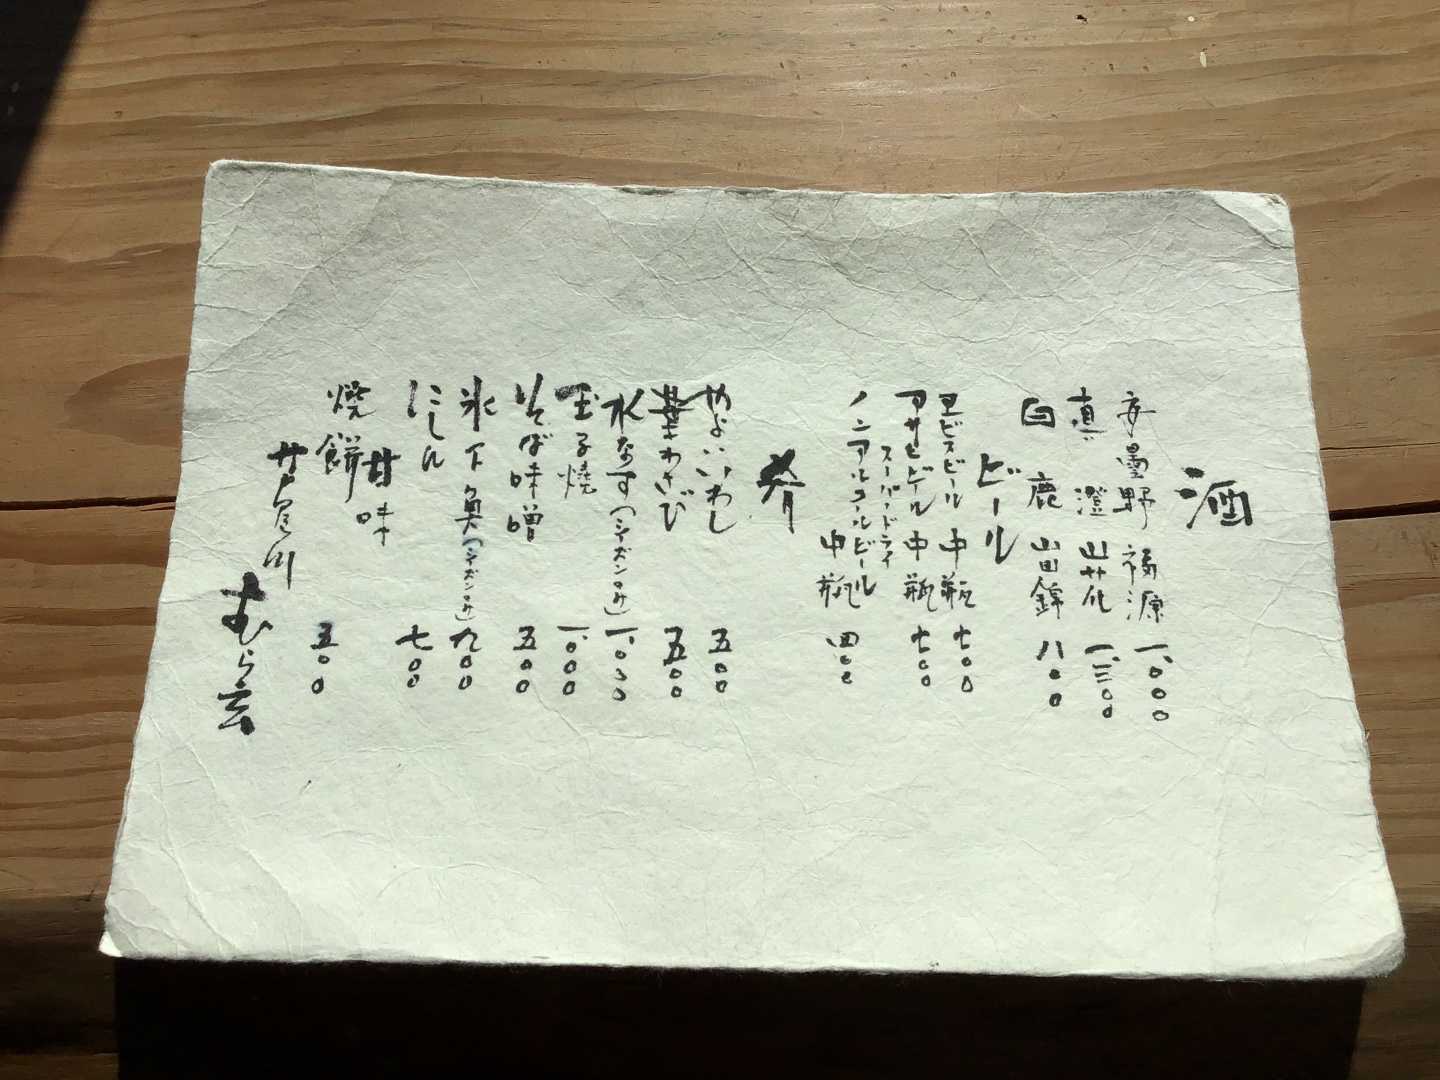 酒
安曇野 福源 一、〇〇〇
真澄 山花 一、三〇〇
白鹿 山田錦 八〇〇
ビール
ヱビスビール 中瓶 七〇〇
アサヒビール 中瓶 七〇〇
スーパードライ
ノンアルコールビール
中瓶 四〇〇
肴
やよいいわし 五〇〇
葉わさび 五〇〇
水なす(シーズンのみ) 一、〇〇〇
玉子焼 一、〇〇〇
そば味噌 五〇〇
氷下魚(シーズンのみ) 九〇〇
にしん 七〇〇
甘味
焼餅 五〇〇
むら玄